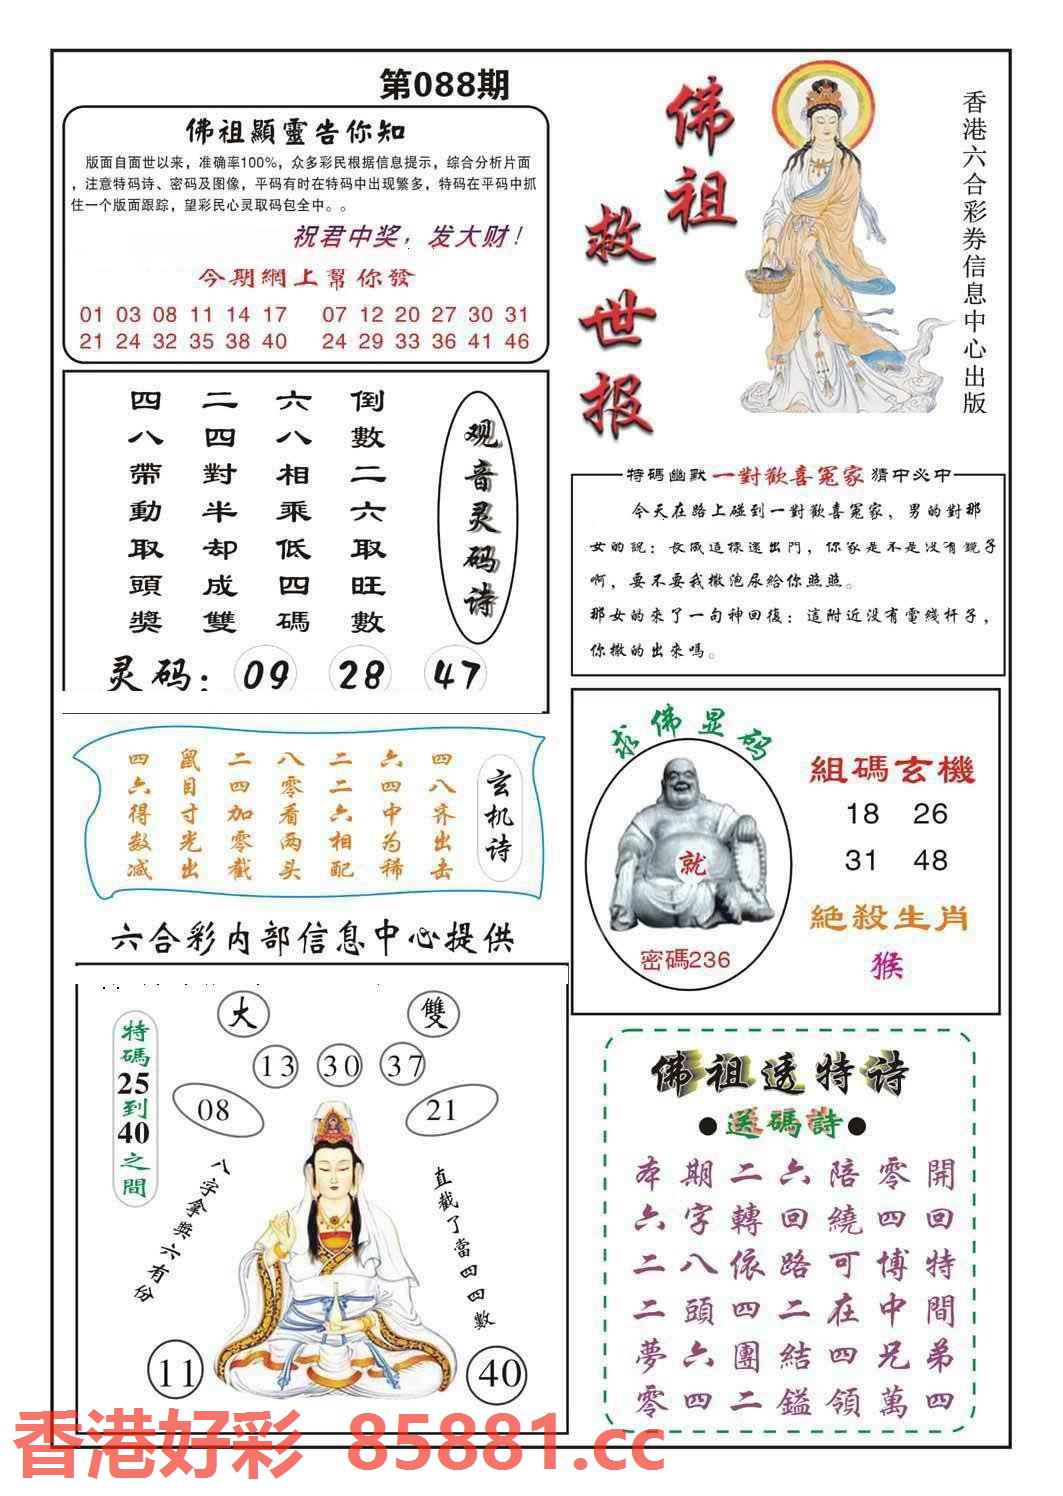 第088期
佛祖顯靈告你知
版面自面世以来，准确率100%，众多彩民根据信息提示，综合分析片面
，注意特码诗、密码及图像，平码有时在特码中出现繁多，特码在平码中抓
住一个版面跟踪，望彩民心灵取码包全中。。
祝君中奖，发大财！
今期網上幫你發
01 03 08 11 14 17 07 12 20 27 30 31
21 24 32 35 38 40 24 29 33 36 41 46
佛祖
救世报
香港六合彩券信息中心出版
观音灵码诗
倒數二六取旺數
六八相乘低四碼
二四對半却成雙
四八帶動取頭獎
灵码：09 28 47
特碼幽默 一對歡喜冤家 猜中必中
今天在路上碰到一對歡喜冤家，男的對那
女的説：長咸這樣還出門，你家是不是没有鏡子
啊，要不要我撒泡尿給你照照。
那女的來了一句神回復：這附近没有電綫杆子，
你撒的出來嗎。
玄机诗
四八齐出击
六四中为稀
二二六相配
八零看两头
二四加零截
鼠目寸光出
四六得数减
求佛显码
就
密碼236
組碼玄機
18 26
31 48
絶殺生肖
猴
六合彩内部信息中心提供
特碼25到40之間
大 雙
13 30 37
08 21
八字拿獎六有份
直截了當四四數
11 40
佛祖透特诗
●送碼詩●
本期二六陪零開
六字轉回繞四回
二八依路可博特
二頭四二在中間
夢六團結四兄弟
零四二鎰領萬四
香港好彩 85881.cc